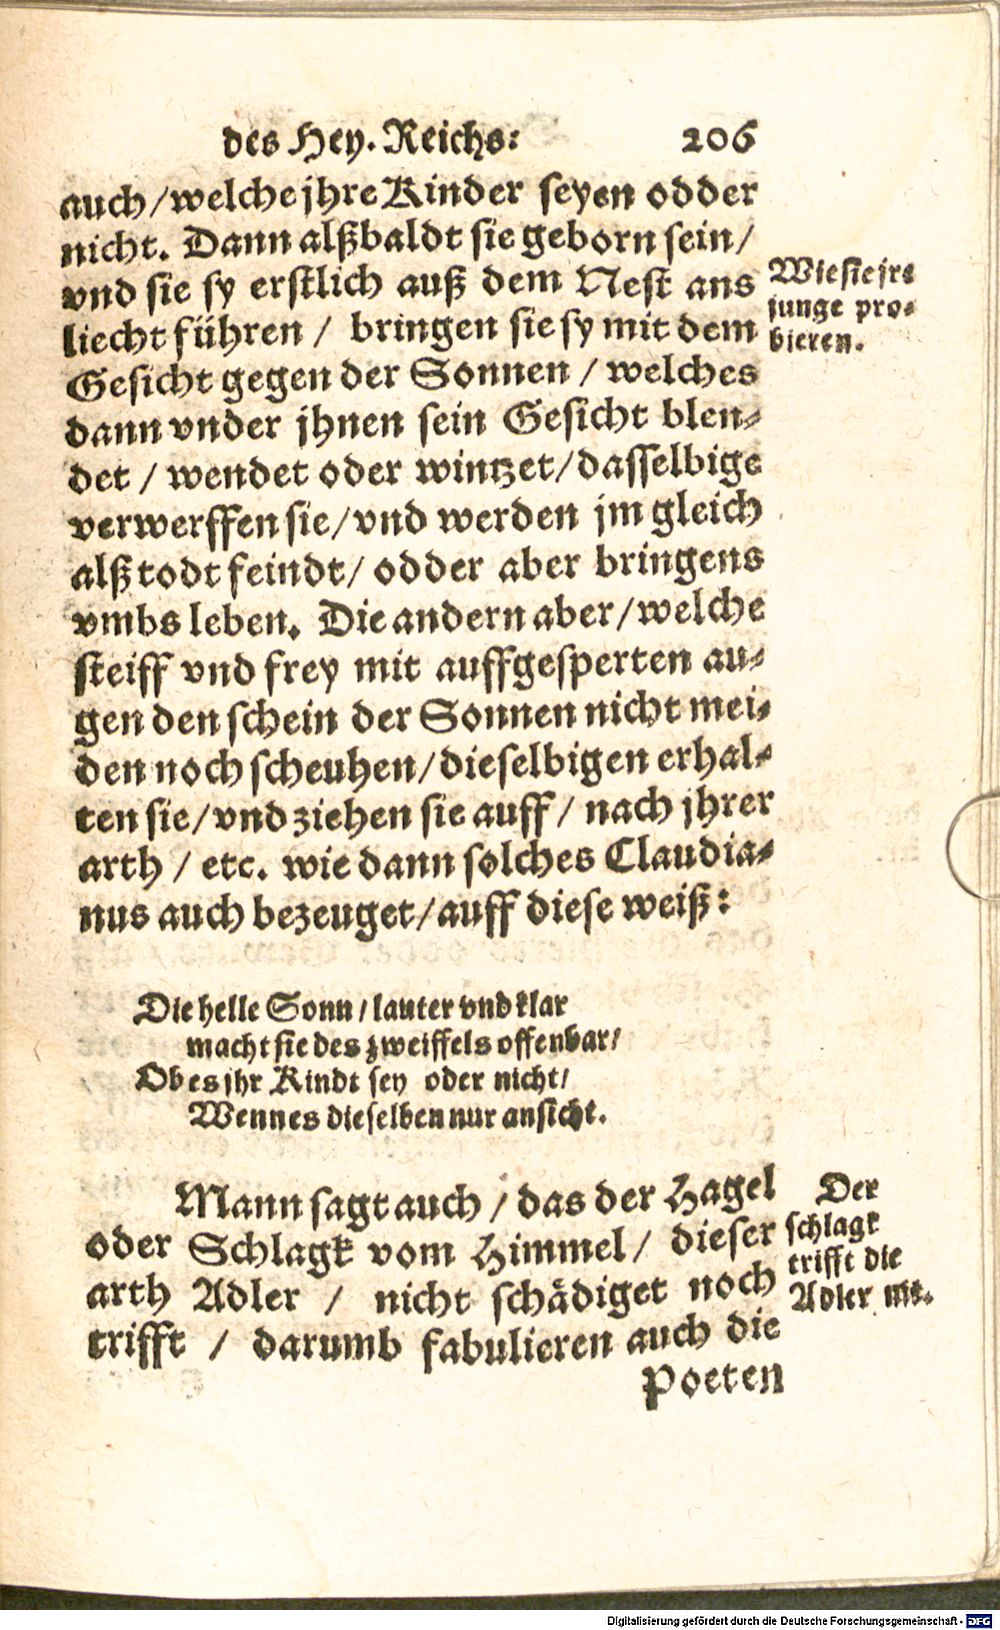 des Hey. Reichs: 206
auch/welche jhre Kinder seyen odder
nicht. Dann alßbaldt sie geborn sein/
vnd sie sy erstlich auß dem Nest ans
liecht führen / bringen sie sy mit dem
Gesicht gegen der Sonnen / welches
dann vnder jhnen sein Gesicht blen-
det / wendet oder wintzet/dasselbige
verwerffen sie/vnd werden jm gleich
alß todt feindt/ odder aber bringens
vmbs leben. Die andern aber/welche
steiff vnd frey mit auffgesperten au-
gen den schein der Sonnen nicht mei-
den noch scheuhen/dieselbigen erhal-
ten sie/vnd ziehen sie auff / nach jhrer
arth / etc. wie dann solches Claudia-
nus auch bezeuget/auff diese weiß:
Wie sie jre
junge pro-
bieren.
Die helle Sonn/lauter vnd klar
macht sie des zweiffels offenbar/
Ob es jhr Kindt sey oder nicht/
Wenn es dieselben nur ansicht.
Mann sagt auch / das der Hagel
oder Schlagk vom Himmel/ dieser
arth Adler / nicht schädiget noch
trifft / darumb fabulieren auch die
Poeten
Der
schlagk
trifft die
Adler nit.
Digitalisierung gefördert durch die Deutsche Forschungsgemeinschaft - DFG